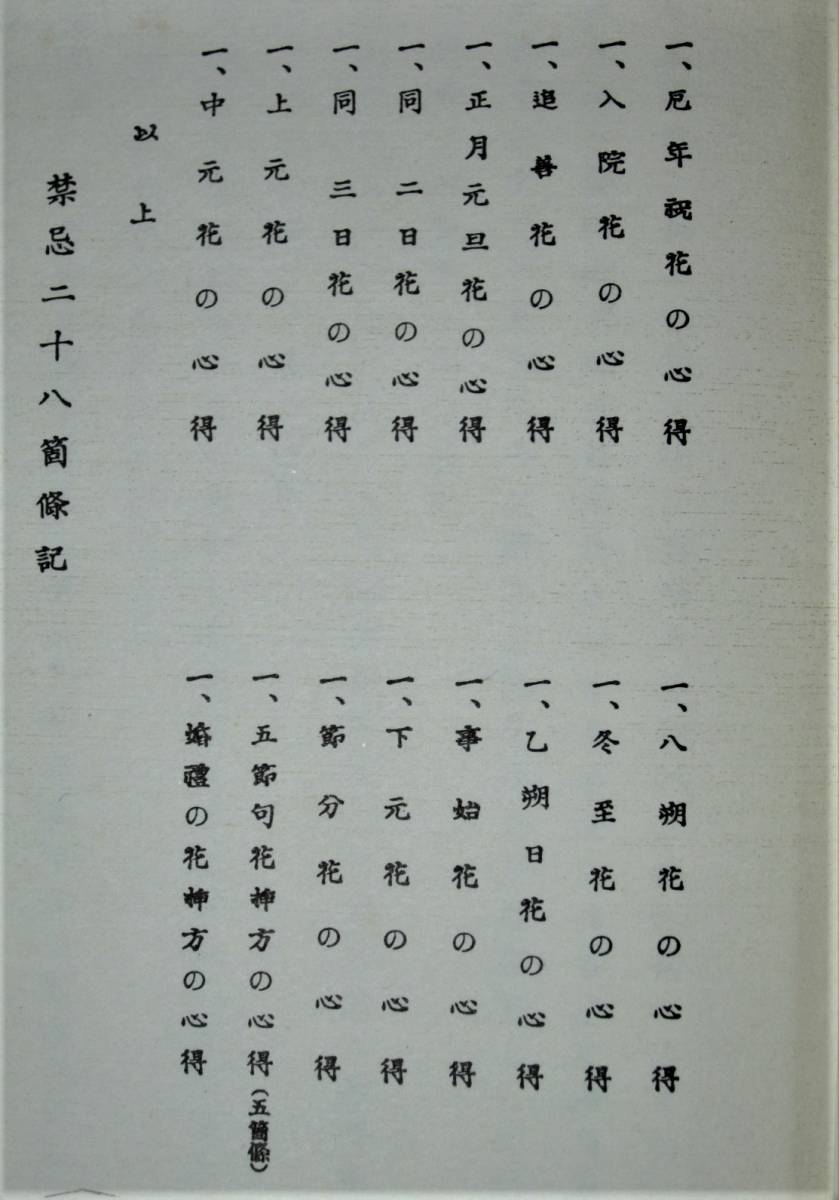 一、厄年祝花の心得
一、入院花の心得
一、追善花の心得
一、正月元旦花の心得
一、同二日花の心得
一、同三日花の心得
一、上元花の心得
一、中元花の心得
一、八朔花の心得
一、冬至花の心得
一、乙朔日花の心得
一、事始花の心得
一、下元花の心得
一、節分花の心得
一、五節句花挿方の心得(五箇條)
一、婚禮の花挿方の心得
以上
禁忌二十八箇條記